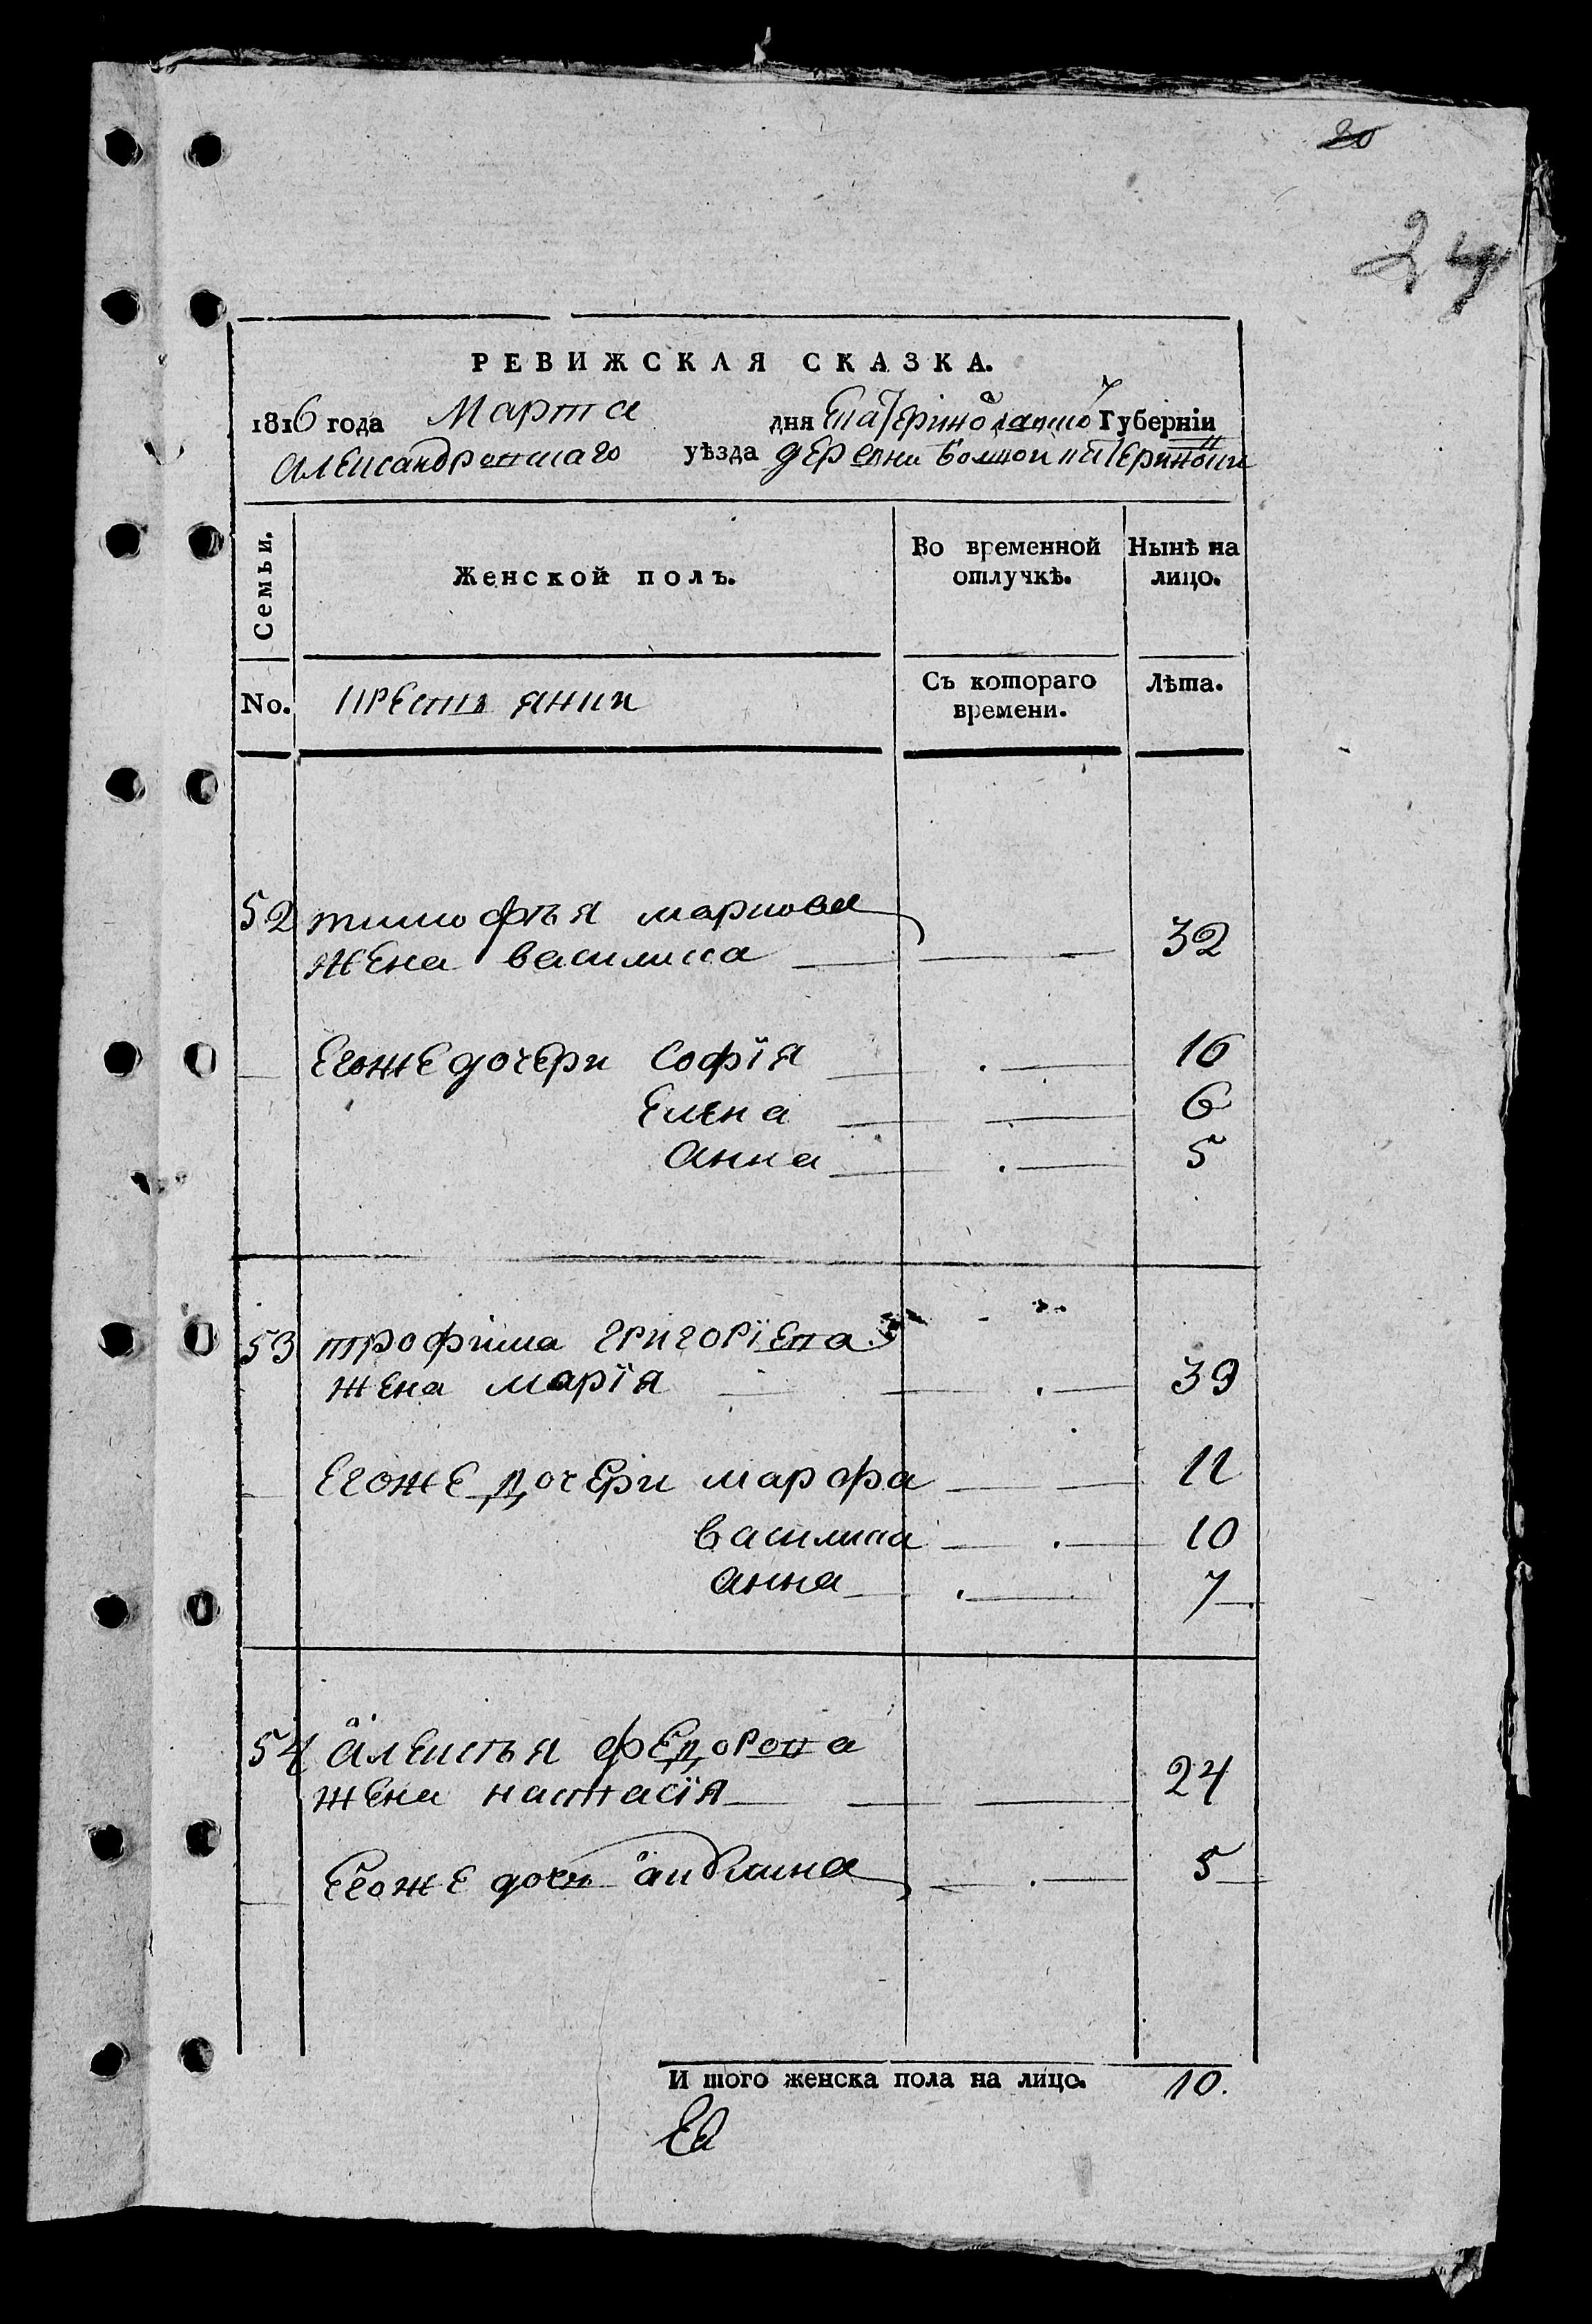 20
24
РЕВИЖСКАЯ СКАЗКА.
1816 года Марта дня Екатеринославской Губерніи
Александровскаго уѣзда деревни Болшой
Семьи. Женской полъ. Во временной отлучкѣ. Нынѣ на лицо.
No. крестьянки Съ котораго времени. Лѣта.
52 тимофѣя маркова
жена василиса 32
Егоже дочери софїя 16
Елена 6
анна 5
53 трофима григорїева
жена марїя 39
Егоже дочери марфа 11
василиса 10
анна 7
54 алексѣя федорова
жена настасїя 24
Егоже дочь акулина 5
И того женска пола на лицо. 10.